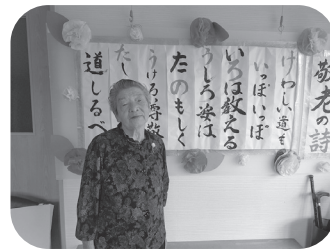 敬老の詩
けわしい道も
いっぽいっぽ
いろは教える
うしろ姿は
たのもしく
うける尊敬
たし
道しるべ